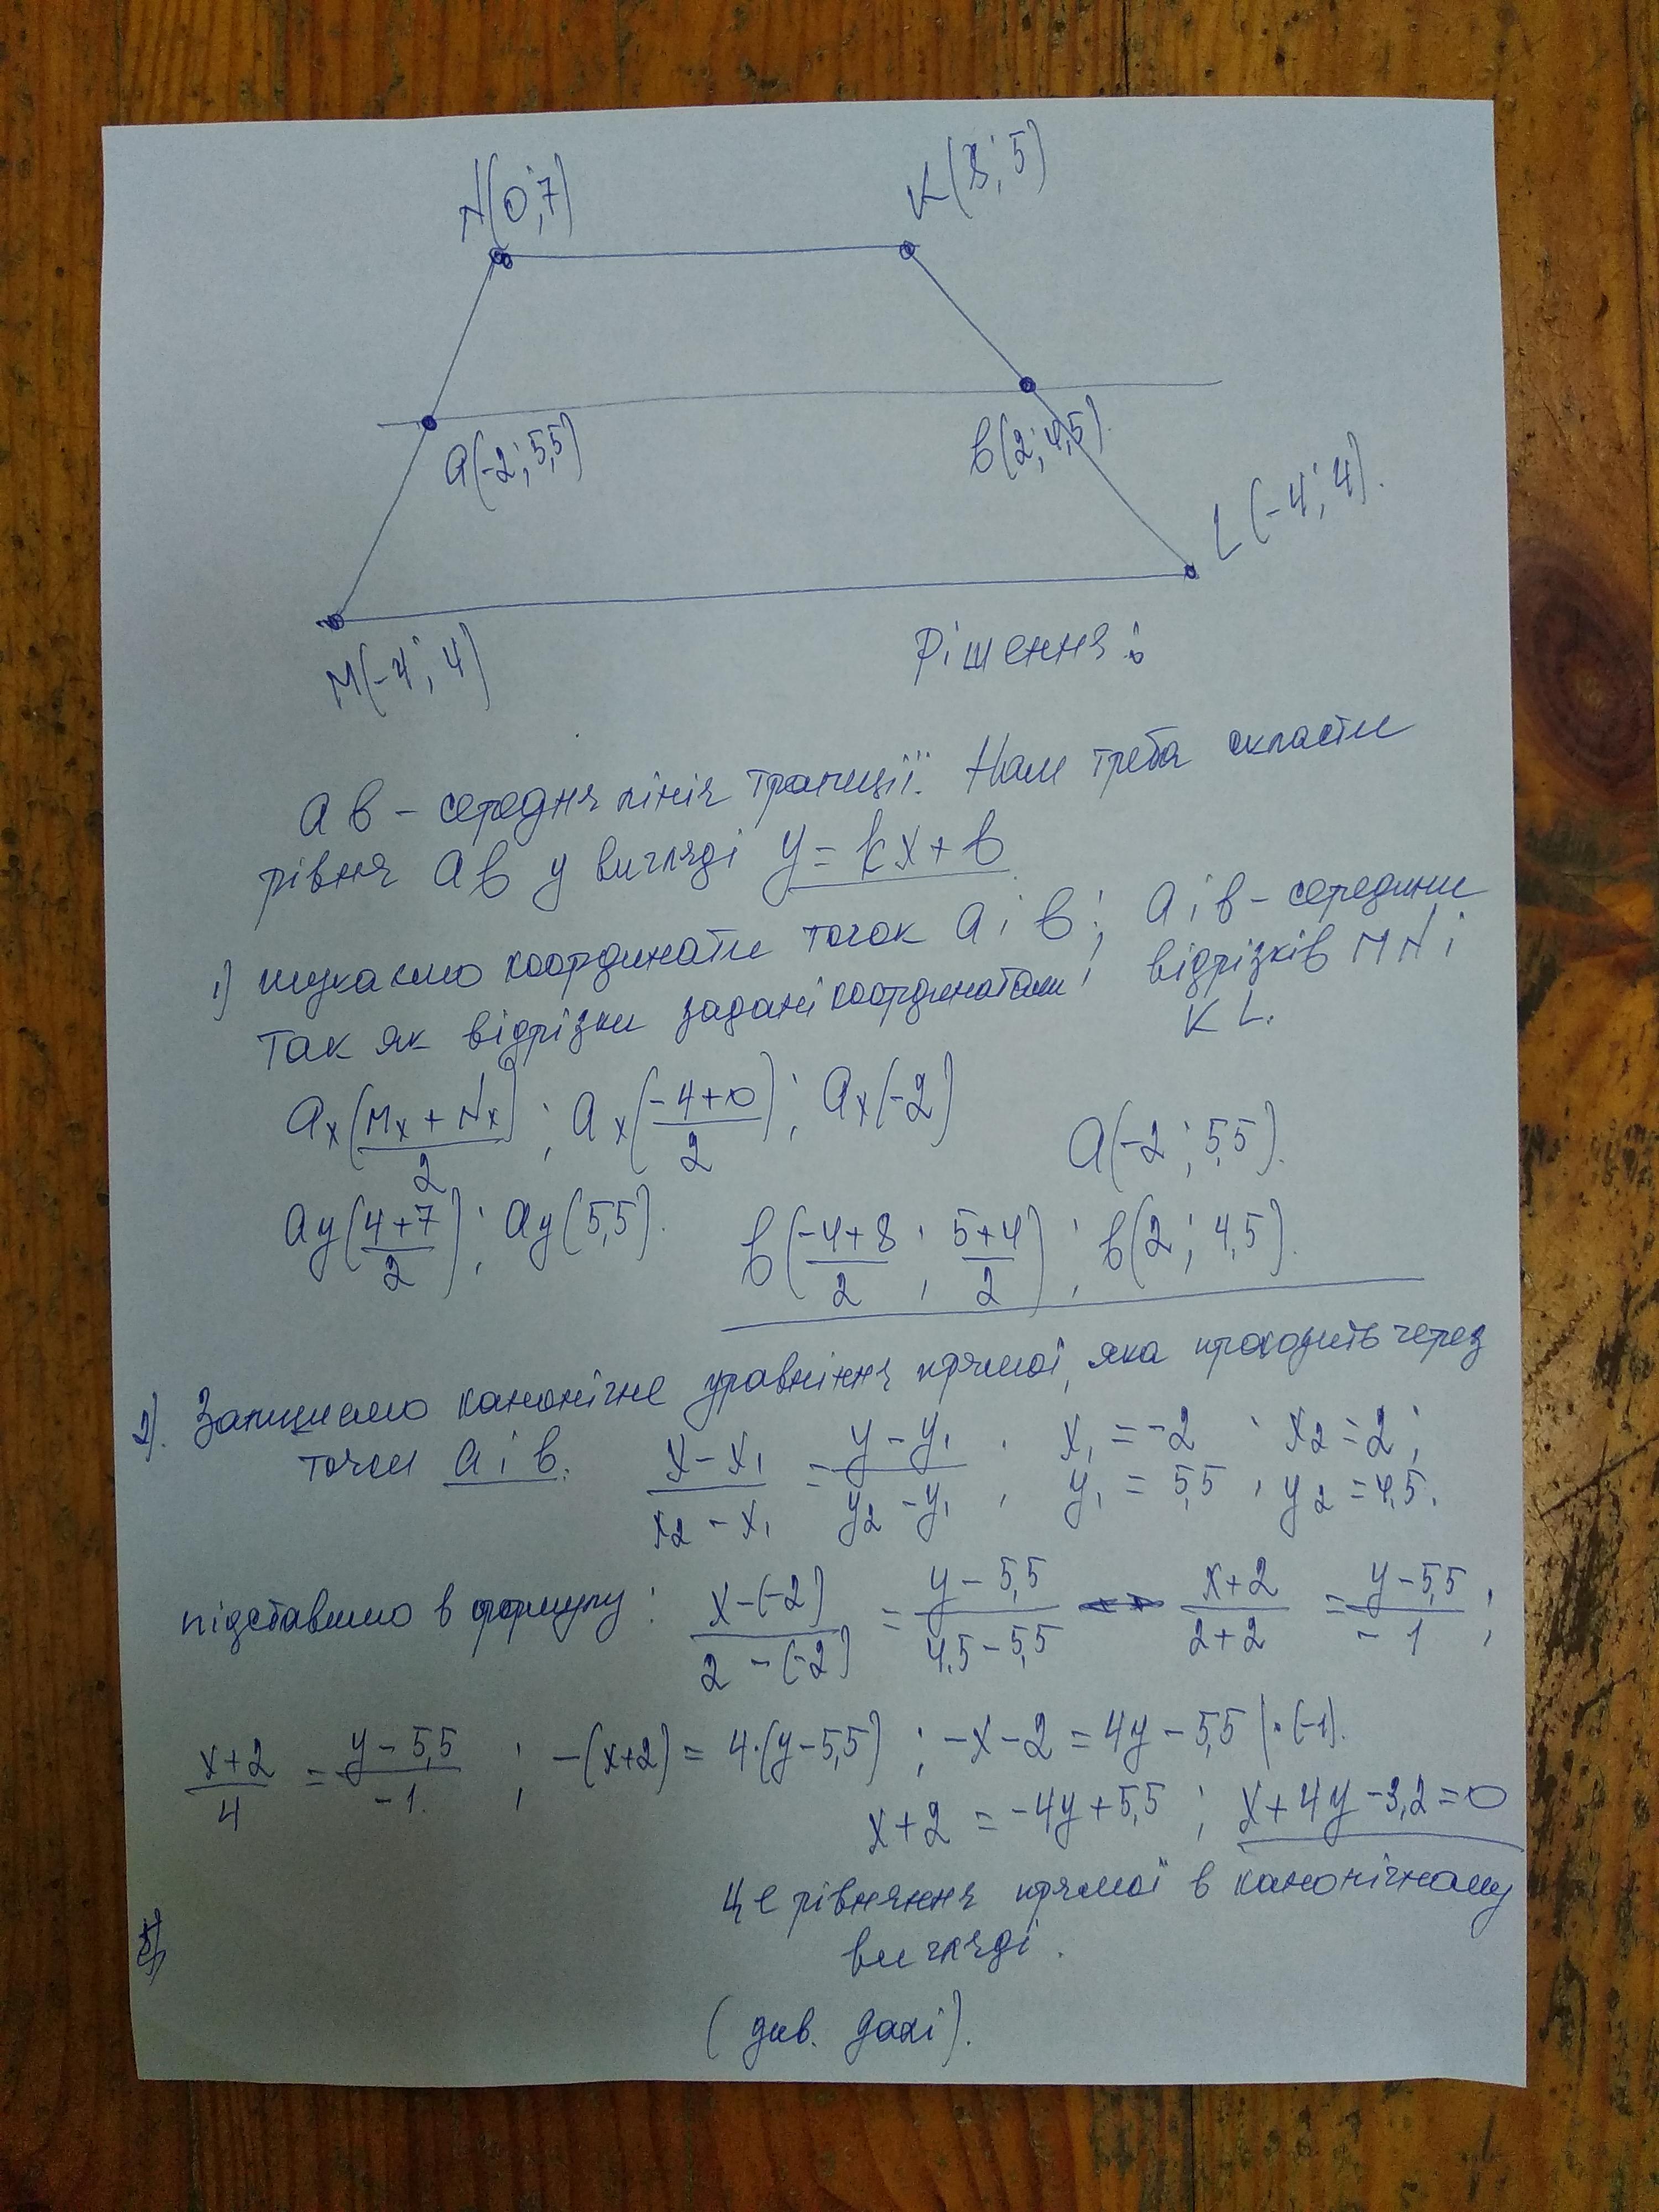 N(0;7)
K(8;5)
A(-2;5,5)
B(2;4,5).
L(-4;4).
M(-4;4)
Рішення:
AB – середня лінія трапеції. Нам треба скласти
рівня AB у вигляді y = kx + b
1) шукаємо координати точок A і B; A і B – середини
Так як відрізки задані координатами; відрізків MN і
KL.
Ax((Mx + Nx)/2); Ax((-4+0)/2); Ax(-2)
A(-2; 5,5).
Ay((4+7)/2); Ay(5,5). B((-4+8)/2; (5+4)/2); B(2; 4,5).
2). Запишемо канонічне уравніння прямої, яка проходить через
точки A і B. (x - x₁)/(x₂ - x₁) = (y - y₁)/(y₂ - y₁), x₁ = -2; x₂ = 2;
y₁ = 5,5; y₂ = 4,5.
підставимо в формулу: (x-(-2))/(2-(-2)) = (y-5,5)/(4,5-5,5) (x+2)/(2+2) = (y-5,5)/(-1);
(x+2)/4 = (y-5,5)/(-1.); -(x+2) = 4·(y-5,5); -x-2 = 4y-5,5 |·(-1).
x+2 = -4y+5,5; x+4y-3,2=0
Це рівняння прямої в канонічному
вигляді.
(див. далі).